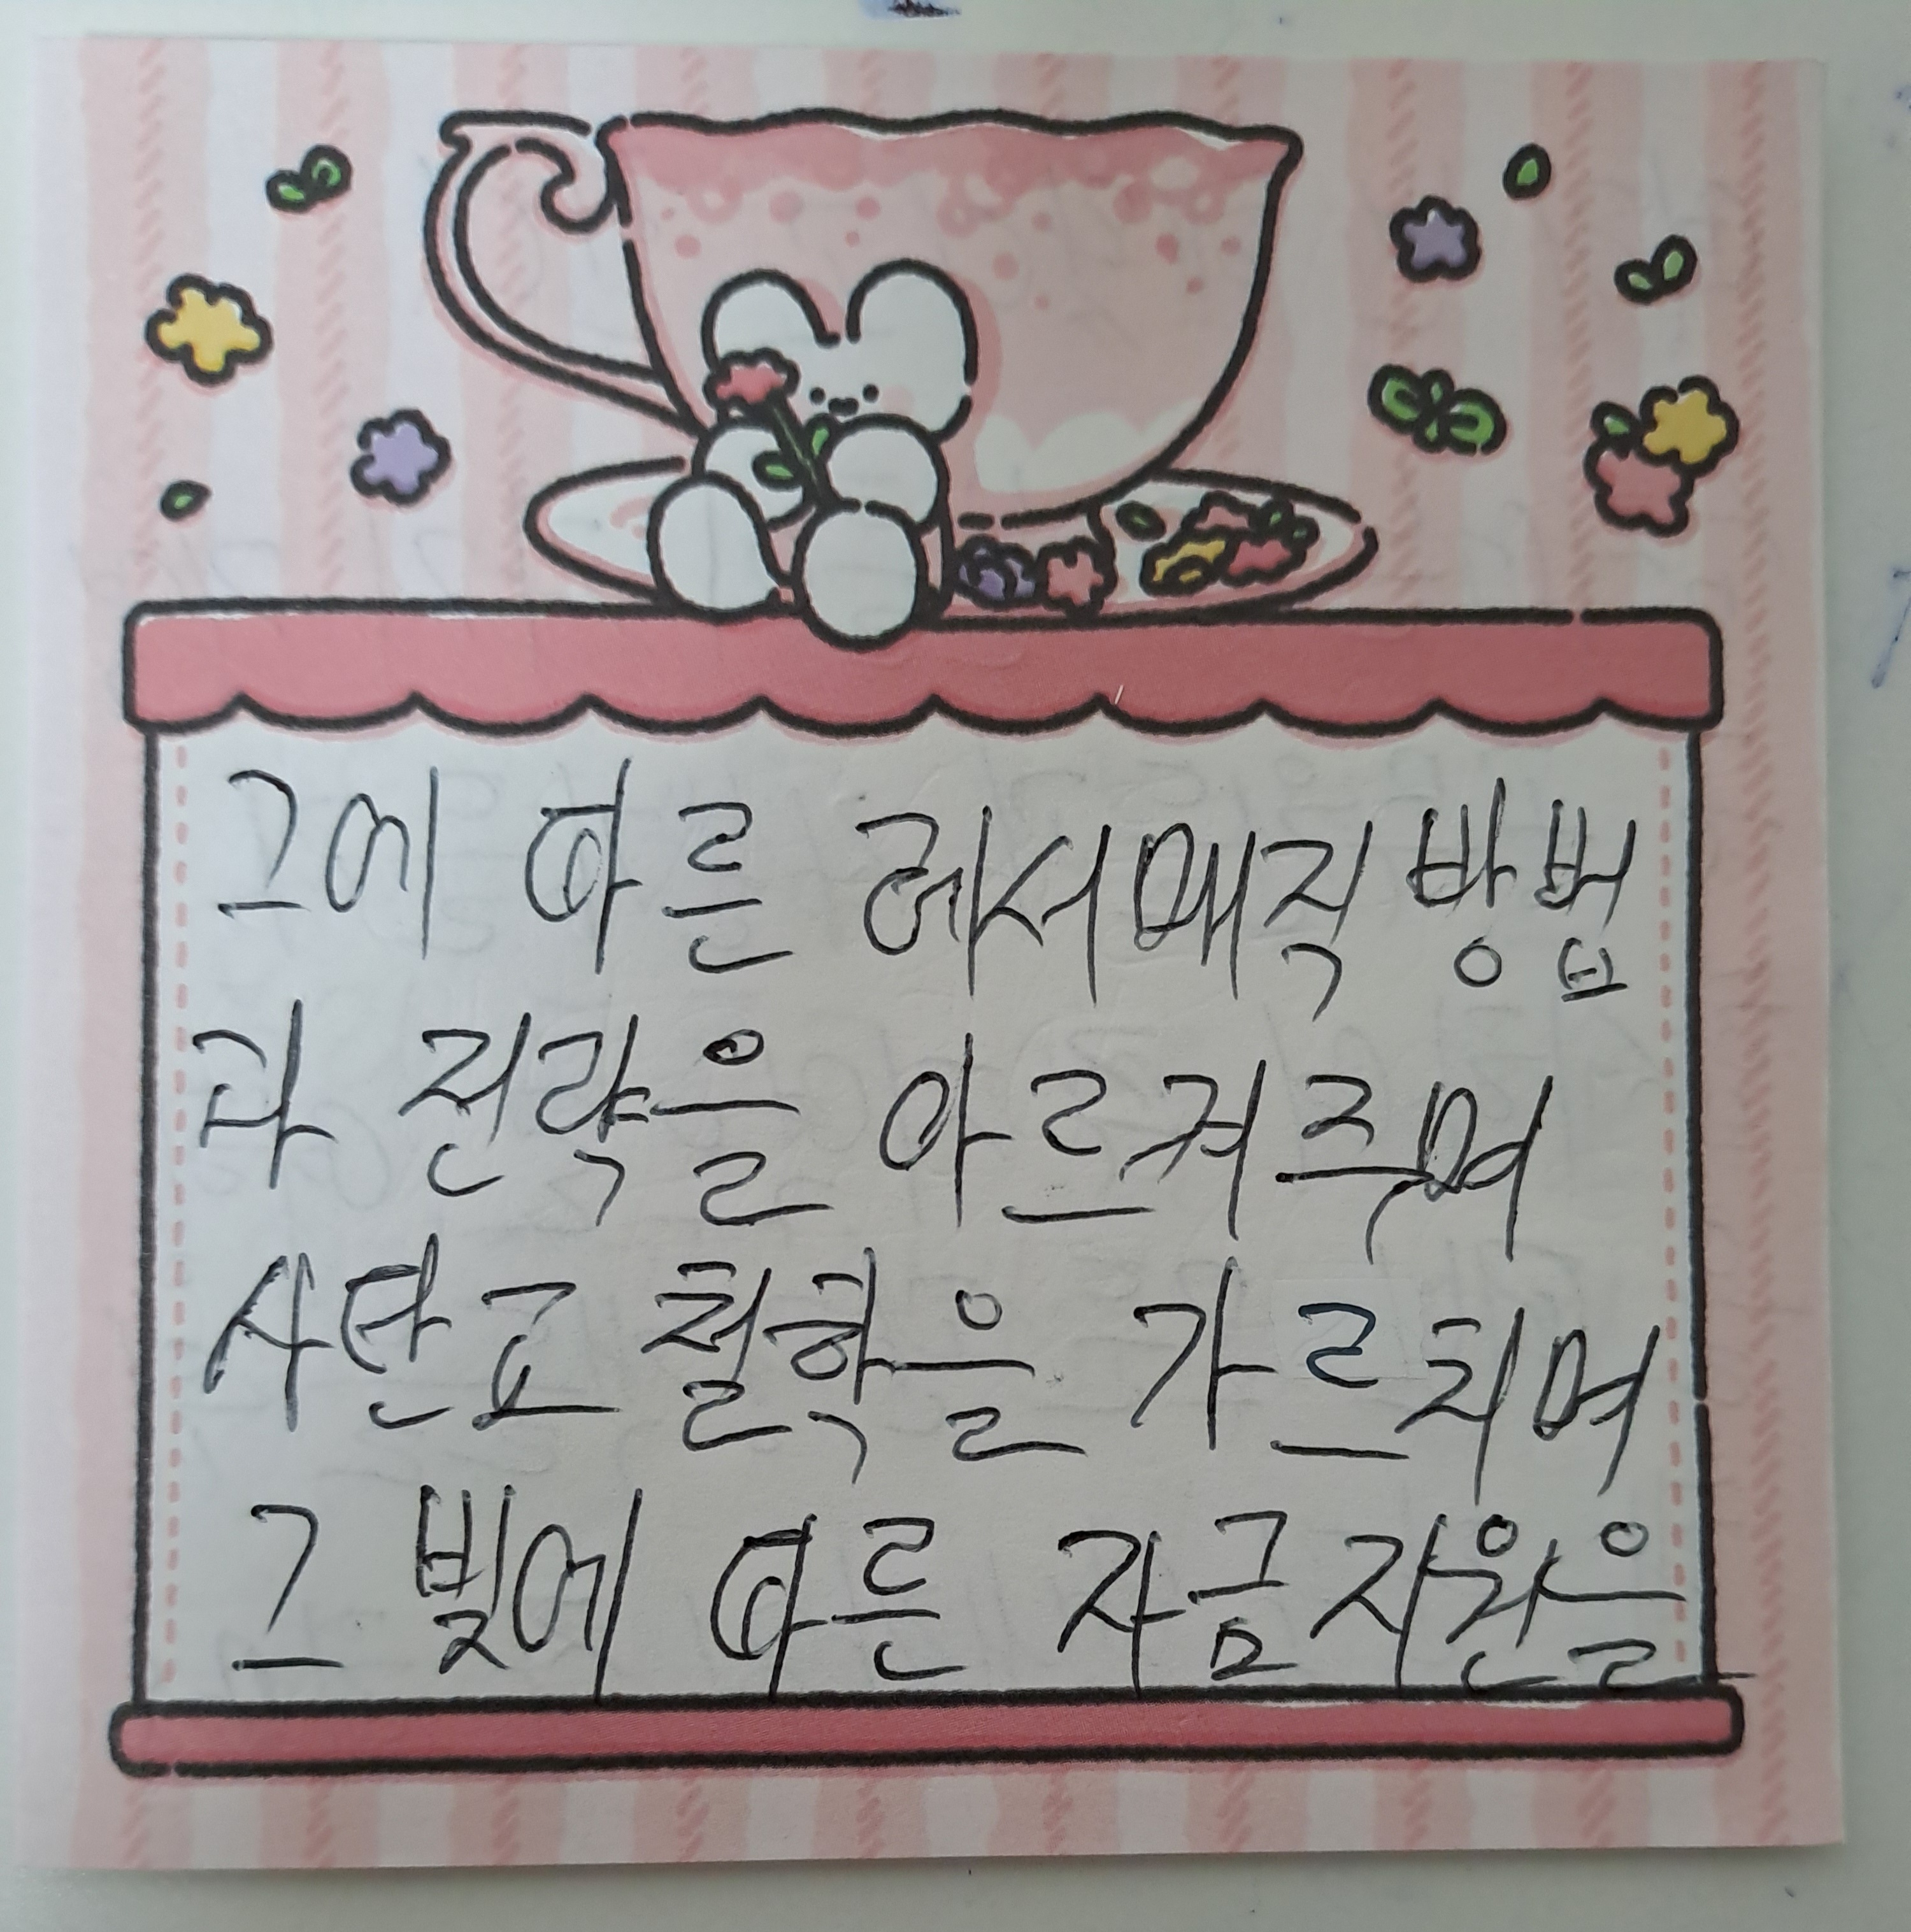 그에 따른 레서매직 방법
과 전략을 아르켜주며
사탄고 철학을 가르치며
그 빛에 따른 자금지원을